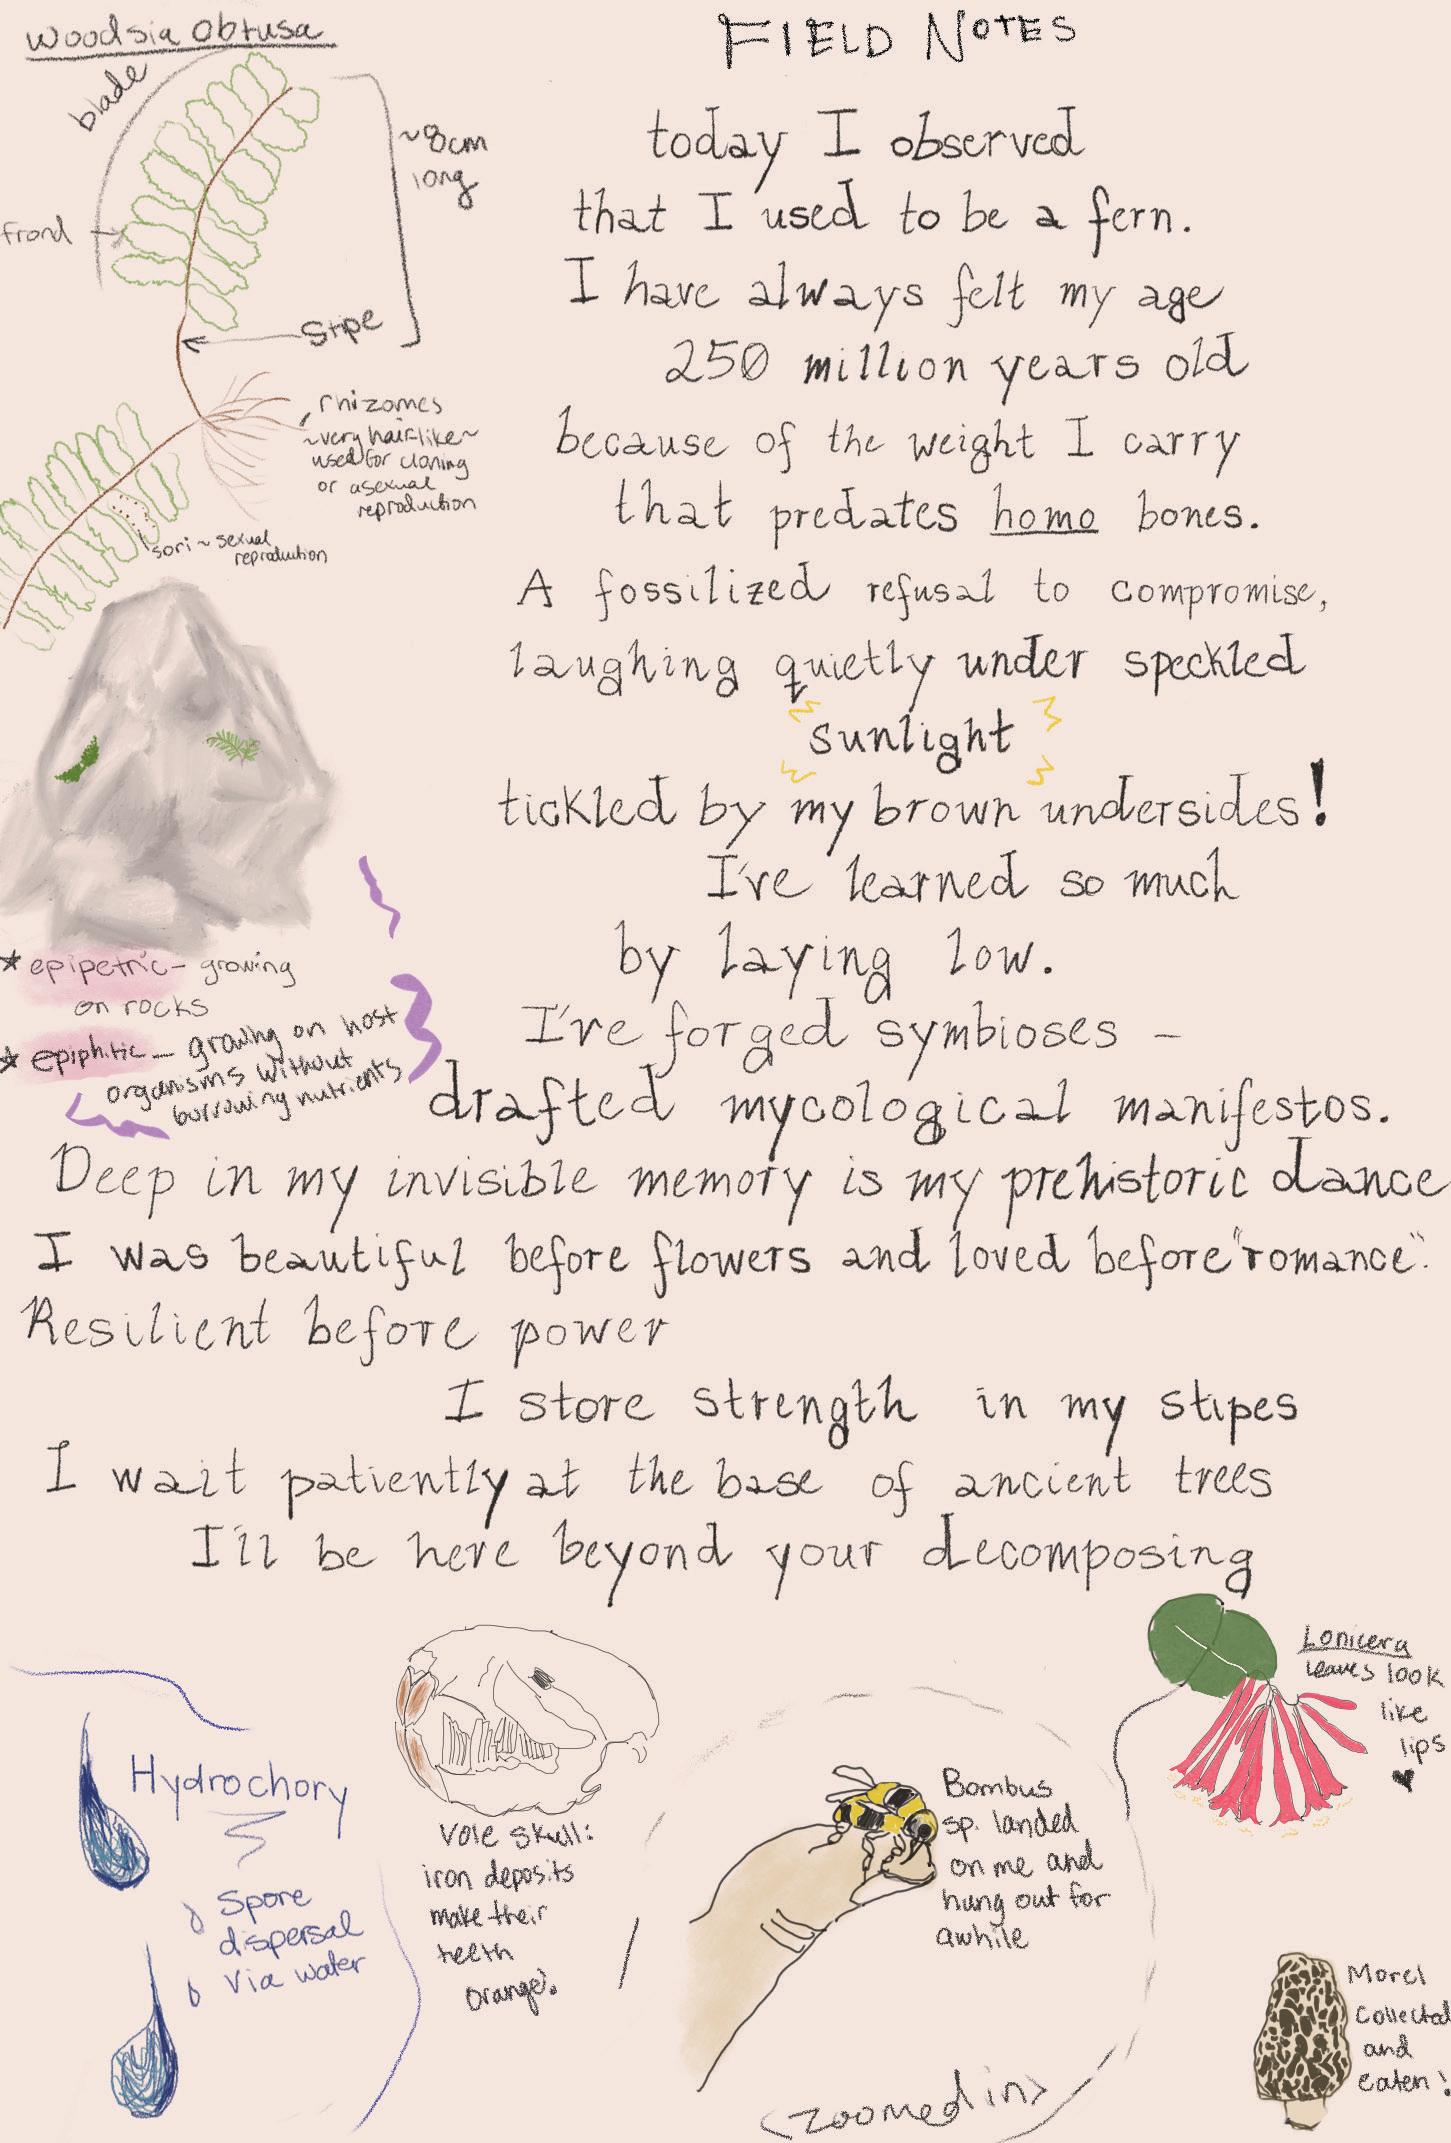 Woodsia Obtusa
blade
frond
~8cm
long
Stipe
rhizomes
~very hair-like~
used for cloning
or asexual
reproduction
sori ~ sexual
reproduction
FIELD NOTES
today I observed
that I used to be a fern.
I have always felt my age
250 million years old
because of the weight I carry
that predates homo bones.
A fossilized refusal to compromise,
laughing quietly under speckled
sunlight
tickled by my brown undersides!
I've learned so much
by laying low.
I've forged symbioses –
drafted mycological manifestos.
Deep in my invisible memory is my prehistoric dance
I was beautiful before flowers and loved before "romance".
Resilient before power
I store strength in my stipes
I wait patiently at the base of ancient trees
I'll be here beyond your decomposing
* epipetric – growing
on rocks
* epiphitic – growing on host
organisms without
burrowing nutrients
Hydrochory
Spore
dispersal
via water
Vole skull:
iron deposits
make their
teeth
orange!.
Bombus
sp. landed
on me and
hung out for
awhile
<zoomed in>
Lonicera
leaves look
like
lips
♥
Morel
collected
and
eaten!